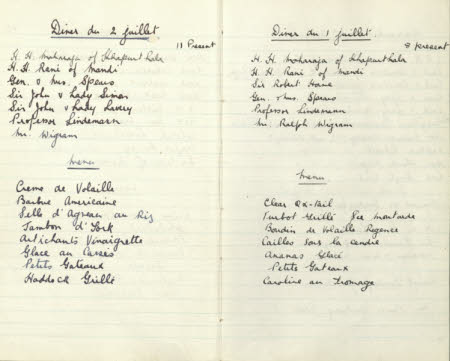 Diner du 2 juillet
11 Present
H. H. Maharaja of Kapurthala
H. H. Rani of Mandi
Gen. & Mrs. Spears
Sir John & Lady Simon
Sir John & Lady Lavery
Professor Lindemann
Mr. Wigram
Menu
Creme de Volaille
Barbue Americaine
Selle d'Agneau au Riz
Jambon d'York
Artichauts Vinaigrette
Glace au Cassis
Petits Gateaux
Haddock Grillé
Diner du 1 juillet
8 present
H. H. Maharaja of Kapurthala
H. H. Rani of Mandi
Sir Robert Horne
Gen. & Mrs. Spears
Professor Lindemann
Mr. Ralph Wigram
Menu
Clear Ox-tail
Turbot Grillé Sce moutarde
Boudin de Volaille Regence
Cailles sous la cendre
Ananas Glacé
Petits Gateaux
Caroline au Fromage